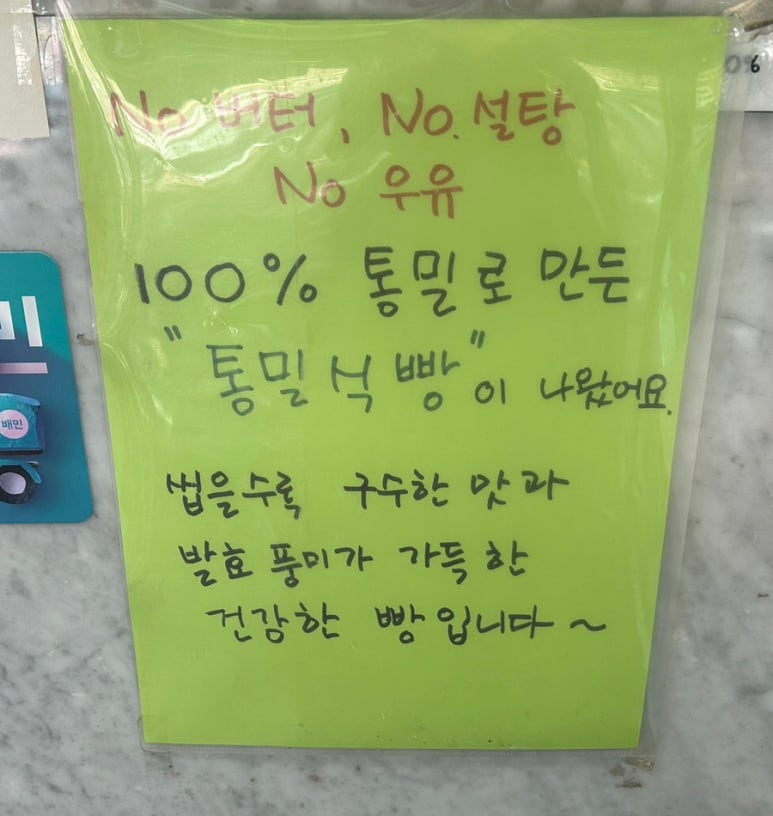 No 버터, No. 설탕
No 우유
100% 통밀로 만든
"통밀식빵"이 나왔어요.
씹을수록 구수한 맛과
발효 풍미가 가득한
건강한 빵입니다~
미
배민